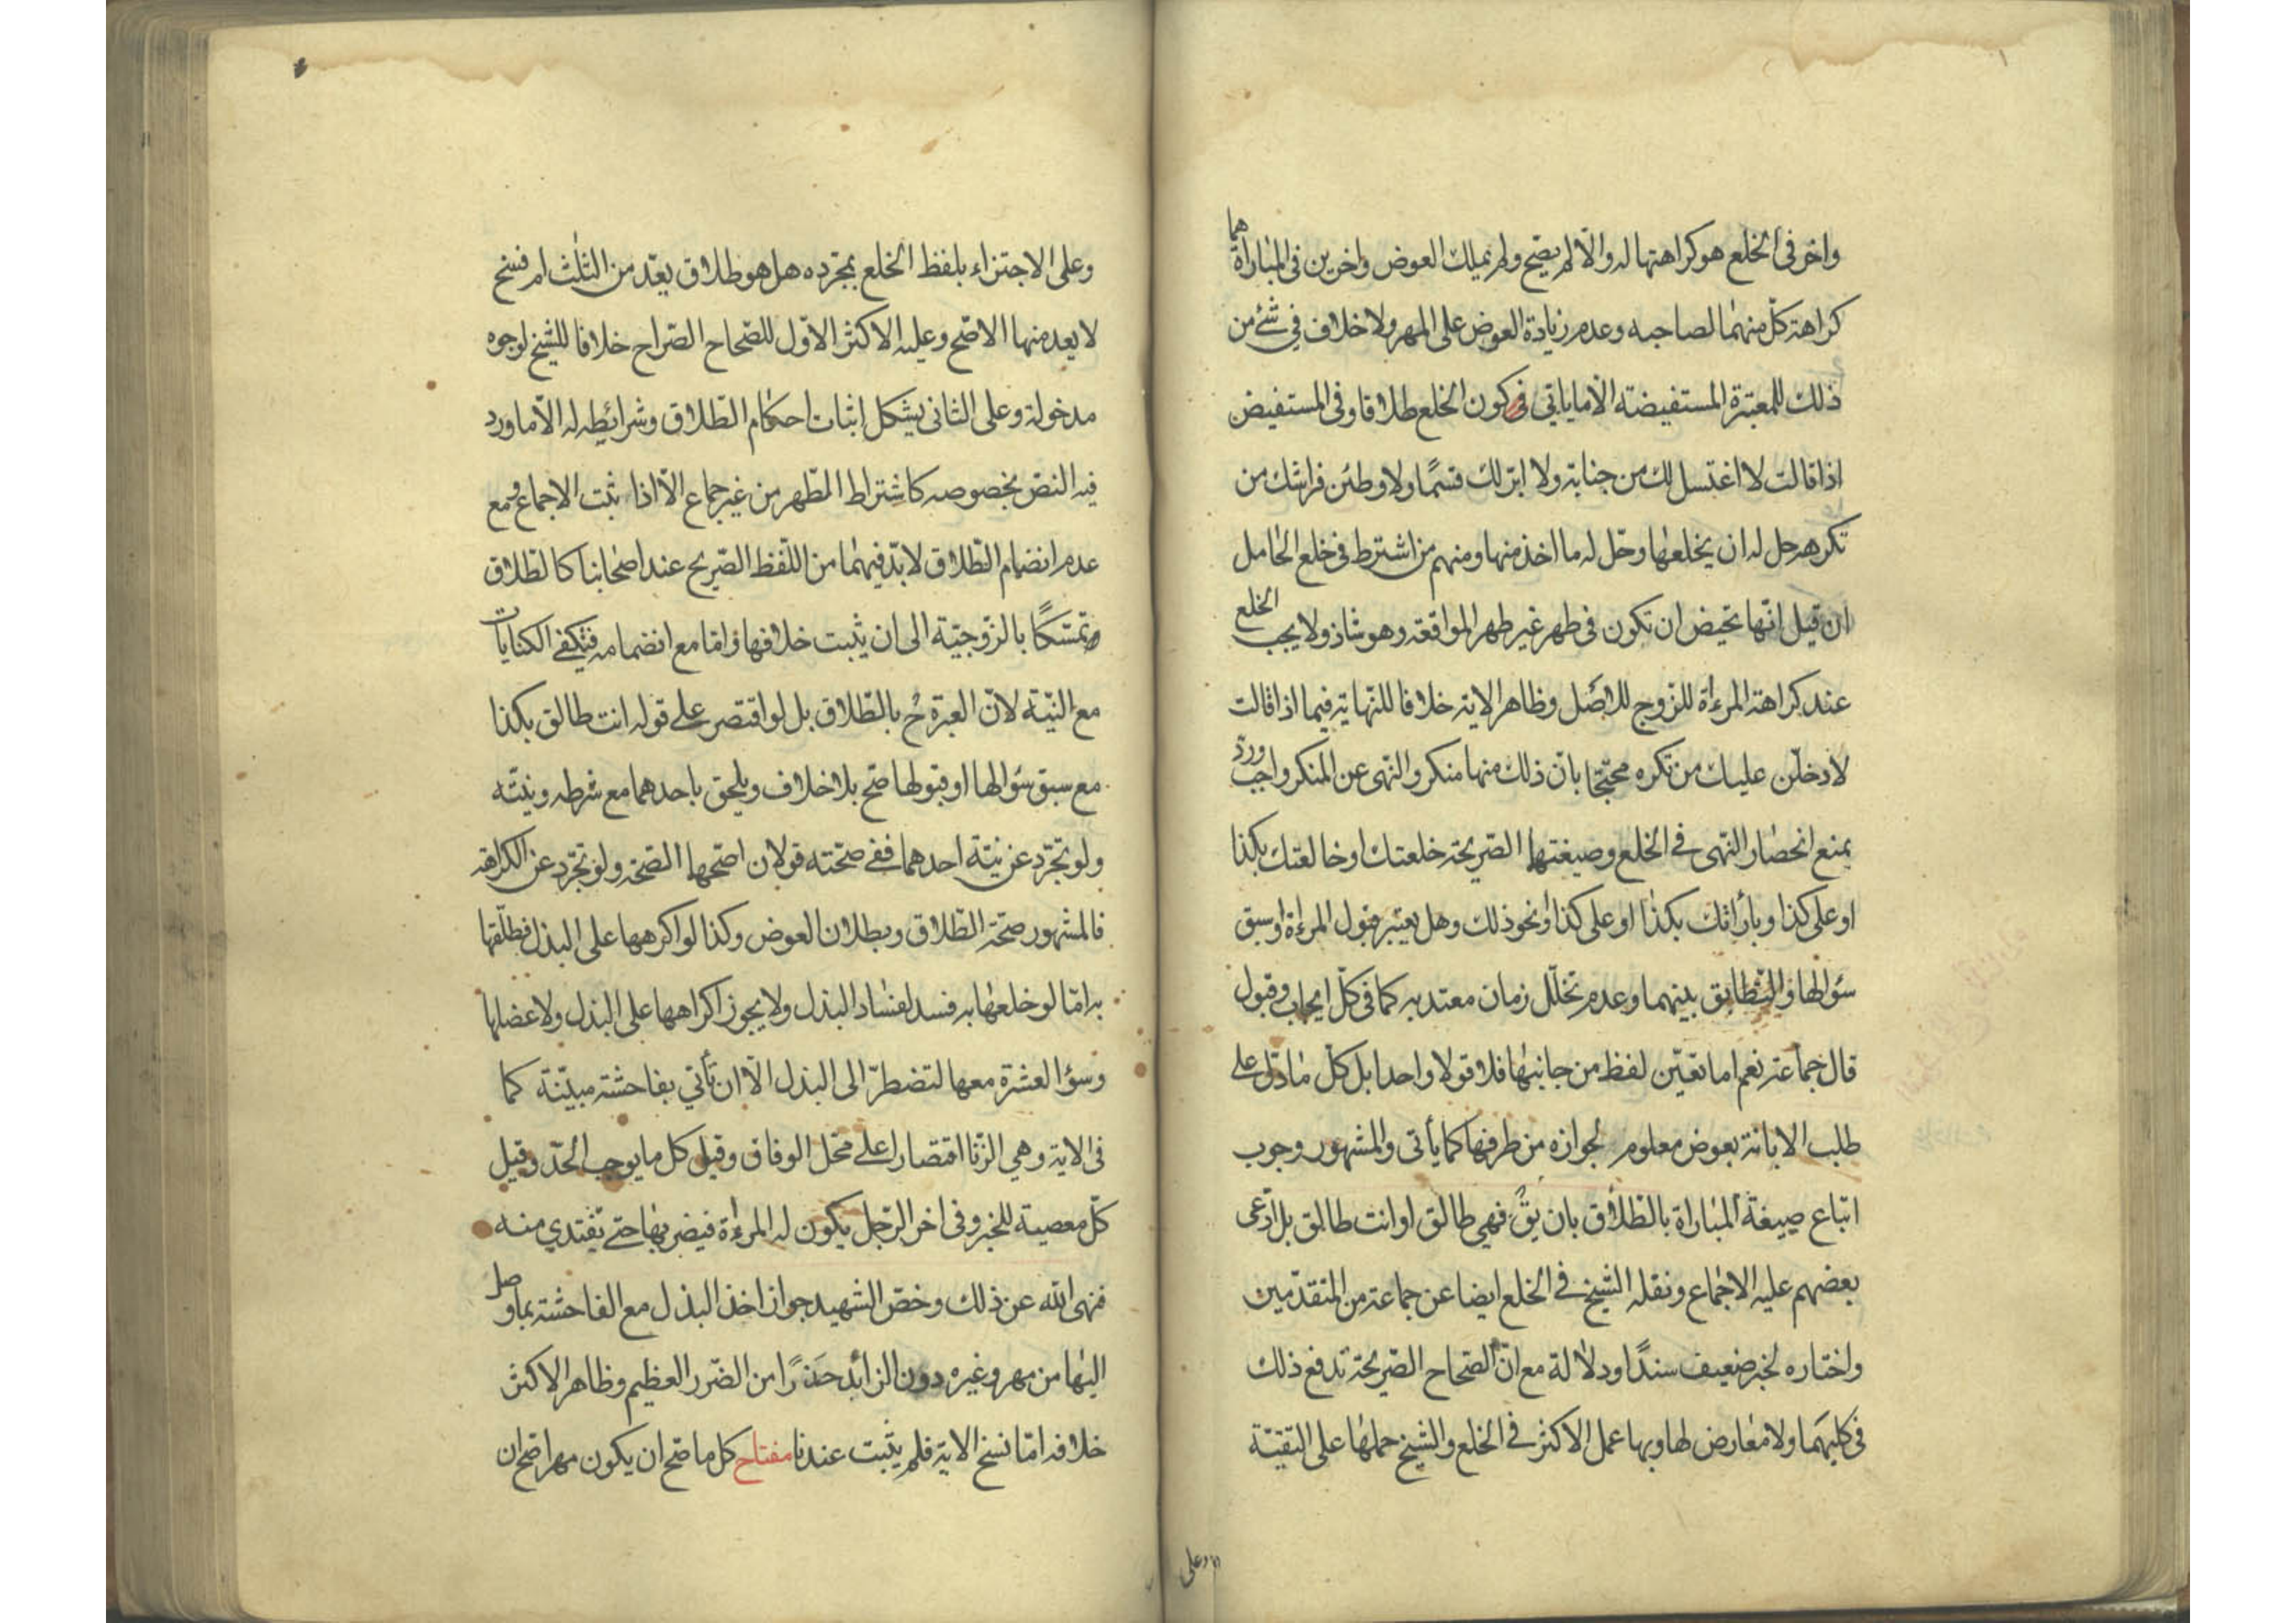 واخر فى الخلع هو كراهتها له والا لم يصح ولم يملك العوض واخرين فى المباراة هما
كراهة كل منهما لصاحبه وعدم زيادة العوض على المهر ولا خلاف في شئ من
ذلك للمعتبرة المستفيضة الا ما ياتي في كون الخلع طلاقا وفى المستفيض
اذا قالت لا اغتسل لك من جنابة ولا ابر لك قسمًا ولاوطئن فراشك من
تكرهه حل له ان يخلعها وحل له ما اخذ منها ومنهم من اشترط فى خلع الحامل
ان قيل انها تحيض ان تكون فى طهر غير طهر المواقعة وهو شاذ ولا يجب الخلع
عند كراهة المرءاة للزوج للاصل وظاهر الاية خلافا للنهاية فيما اذا قالت
لادخلن عليك من تكره محتجا بان ذلك منها منكر والنهى عن المنكر واجب ورد
بمنع انحصار النهى في الخلع وصيغتها الصريحة خلعتك او خالعتك بكذا
او على كذا وبارأتك بكذا او على كذا ونحو ذلك وهل يعتبر قبول المرءاة او سبق
سؤالها والتطابق بينهما وعدم تخلل زمان معتد به كما فى كل ايجاب وقبول
قال جماعة نعم اما تعين لفظ من جانبها فلا قولا واحدا بل كل ما دل على
طلب الابانة بعوض معلوم لجوازه من طرفها كما يأتى والمشهور وجوب
اتباع صيغة المباراة بالطلاق بان يق فهي طالق او انت طالق بل ادعى
بعضهم عليه الاجماع ونقله الشيخ في الخلع ايضا عن جماعة من المتقدمين
واختاره لخبر ضعيف سندًا ودلالة مع ان الصحاح الصريحة تدفع ذلك
فى كليهما ولا معارض لها وبها عمل الاكثر في الخلع والشيخ حملها على التقية
وعلى
وعلى الاجتزاء بلفظ الخلع بمجرده هل هو طلاق يعد من الثلث ام فسخ
لا يعد منها الاصح وعليه الاكثر الاول للصحاح الصراح خلافا للشيخ لوجوه
مدخولة وعلى الثانى يشكل اثبات احكام الطلاق وشرائطه له الا ما ورد
فيه النص بخصوصه كاشتراط الطهر من غير جماع الا اذا ثبت الاجماع ومع
عدم انضمام الطلاق لا بد فيهما من اللفظ الصريح عند اصحابنا كالطلاق
تمسكًا بالزوجية الى ان يثبت خلافها واما مع انضمامه فتكفي الكنايات
مع النية لان العبرة ح بالطلاق بل لو اقتصر على قوله انت طالق بكذا
مع سبق سؤالها او قبولها صح بلا خلاف ويلحق باحدهما مع شرطه ونيته
ولو تجرد عن نية احدهما ففي صحته قولان اصحهما الصحة ولو تجرد عن الكراهة
فالمشهور صحة الطلاق وبطلان العوض وكذا لو اكرهها على البذل فطلقها
به اما لو خلعها به فسد لفساد البذل ولا يجوز اكراهها على البذل ولا عضلها
وسؤ العشرة معها لتضطر الى البذل الا ان تأتي بفاحشة مبينة كما
فى الاية وهي الزنا اقتصارا على محل الوفاق وقيل كل ما يوجب الحد وقيل
كل معصية للخبر وفى اخر الرجل يكون له المرءاة فيضر بها حتى تفتدي منه
فنهى الله عن ذلك وخص الشهيد جواز اخذ البذل مع الفاحشة بما وصل
اليها من مهر وغيره دون الزائد حذرًا من الضرر العظيم وظاهر الاكثر
خلافه اما نسخ الاية فلم يثبت عندنا مفتاح كل ما صح ان يكون مهرا صح ان